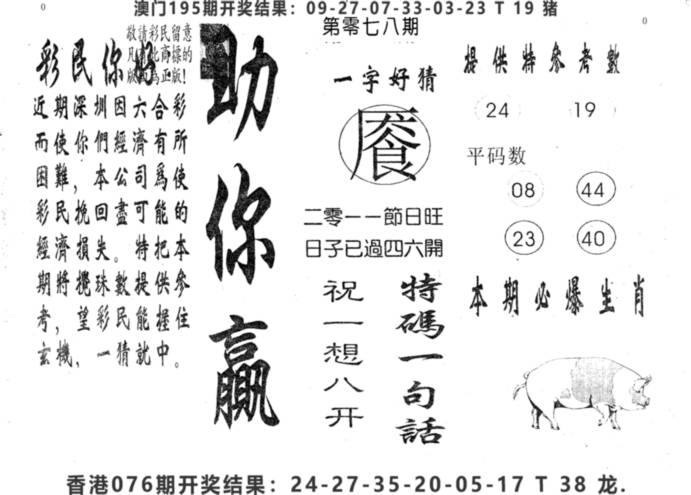 澳门195期开奖结果：09-27-07-33-03-23 T 19 猪
0
0
彩民你好
敬請彩民留意
版!
近期深圳因六合彩
而使你們經濟有所
困難，本公司爲使
彩民挽回盡可能的
經濟損失。特把本
期將攪珠數提供參
考，望彩民能握住
玄機，一猜就中。
助你贏
第零七八期
一字好猜
二零一一節日旺
日子已過四六開
祝一想八开
特碼一句話
提供特参考數
24 19
平码数
08 44
23 40
本期必爆生肖
香港076期开奖结果：24-27-35-20-05-17 T 38 龙.